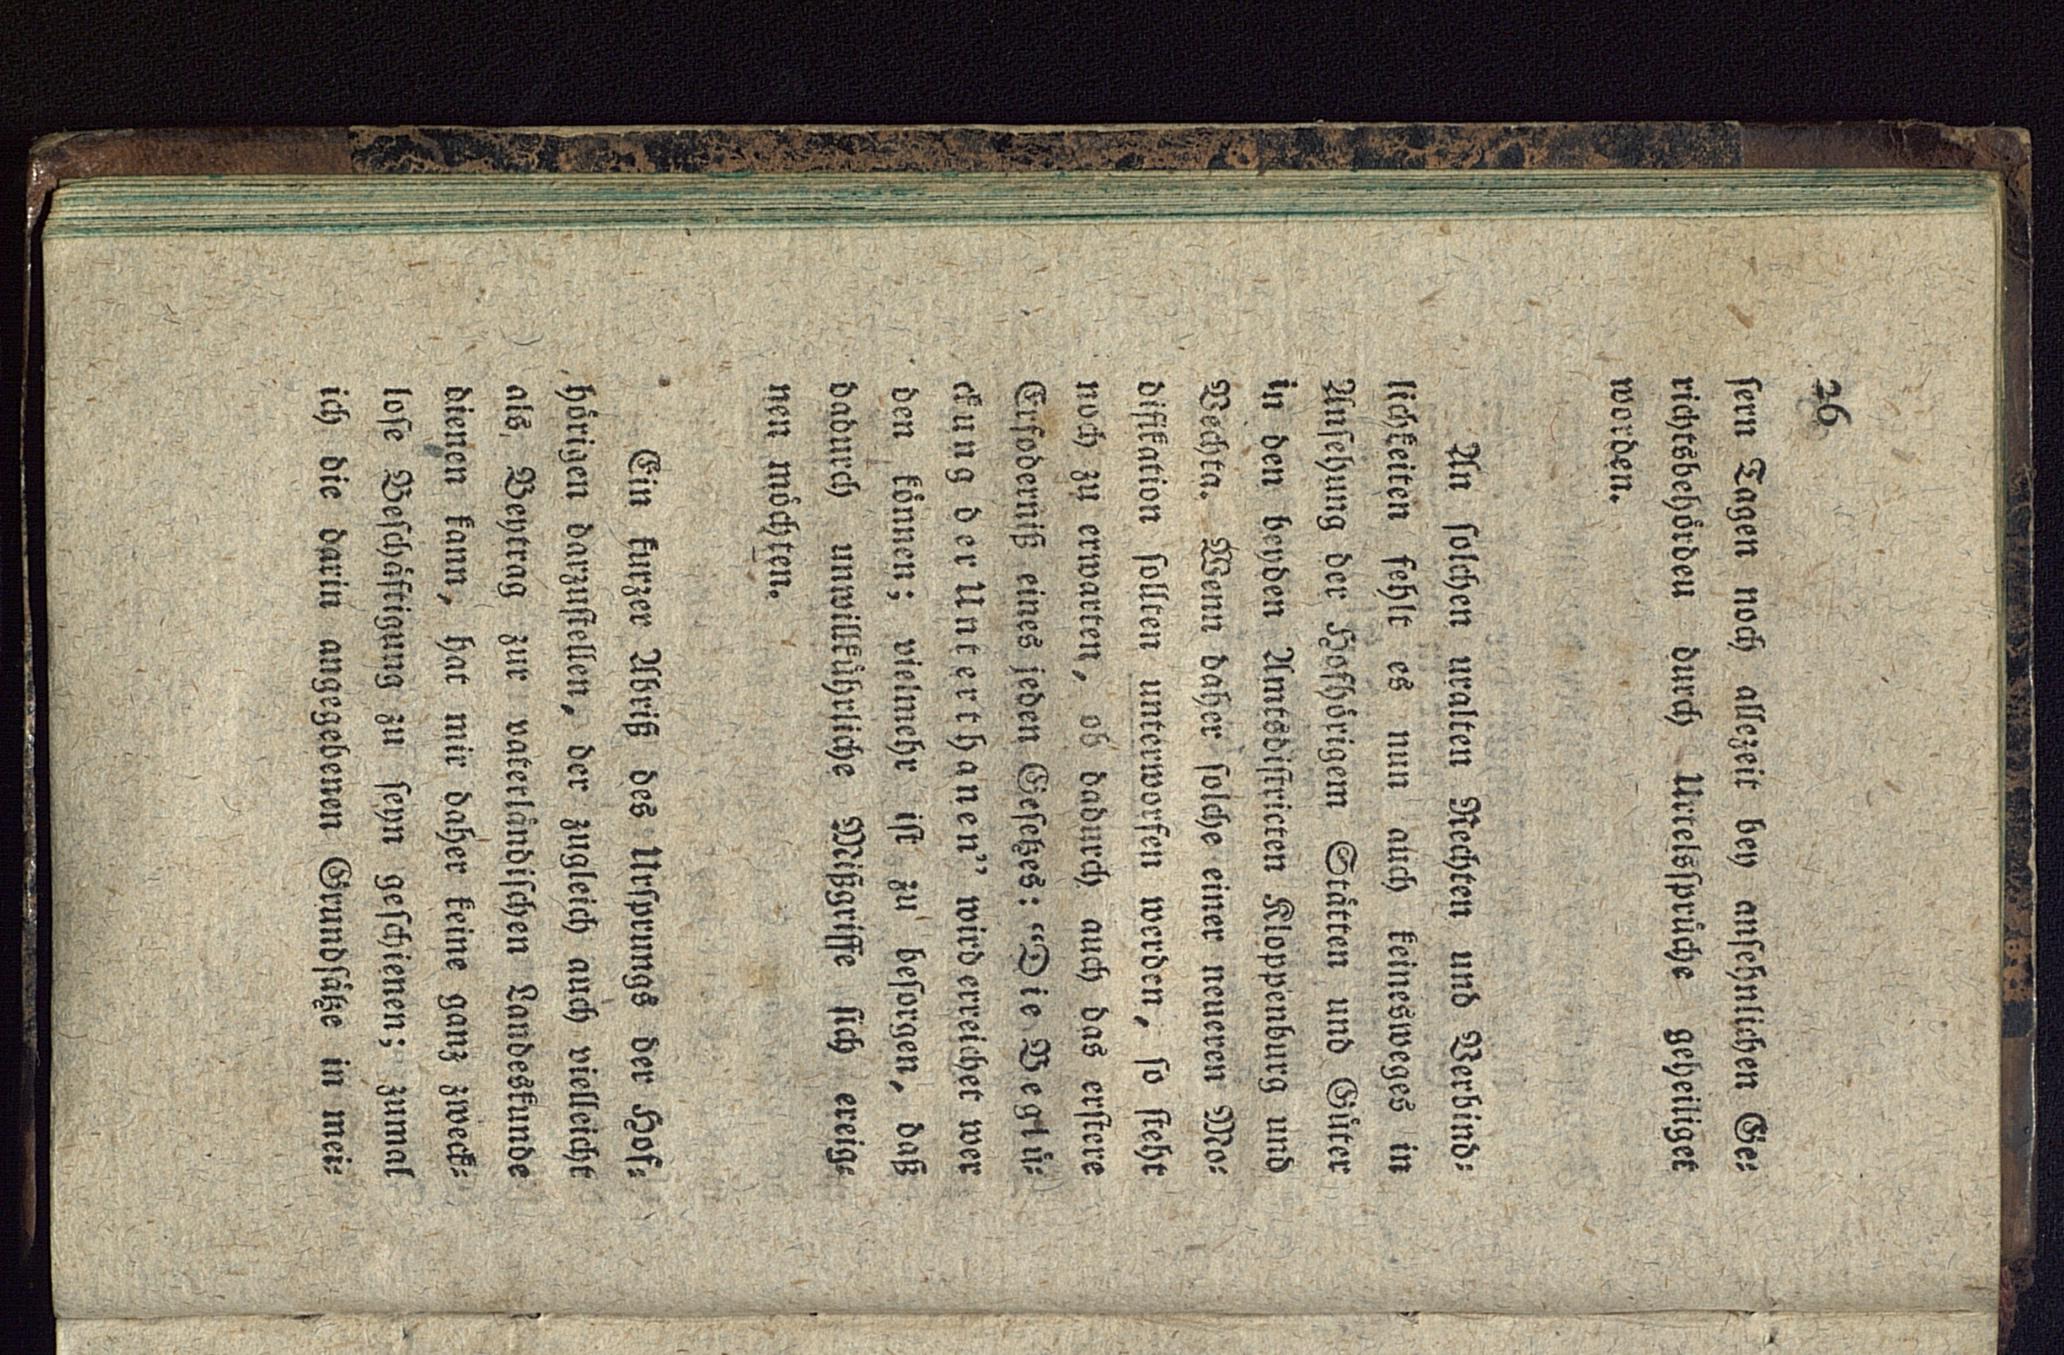 26
ſern Tagen noch allezeit bey anſehnlichen Ge⸗
richtsbehörden durch Urtelsſprüche geheiliget
worden.
An ſolchen uralten Rechten und Verbind⸗
lichkeiten fehlt es nun auch keinesweges in
Anſehung der Hofhörigem Stätten und Güter
in den beyden Amtsdiſtricten Kloppenburg und
Vechta. Wenn daher ſolche einer neueren Mo⸗
difikation ſollten unterworfen werden, ſo ſteht
noch zu erwarten, ob dadurch auch das erſtere
Erforderniß eines jeden Geſetzes: “Die Beglü⸗
ckung der Unterthanen” wird erreichet wer
den können; vielmehr iſt zu beſorgen, daß
dadurch unwillkührliche Mißgriffe ſich ereig⸗
nen möchten.
Ein kurzer Abriß des Urſprungs der Hof⸗
hörigen darzuſtellen, der zugleich auch vielleicht
als Beytrag zur vaterländiſchen Landeskunde
dienen kann, hat mir daher keine ganz zweck⸗
loſe Beſchäftigung zu ſeyn geſchienen; zumal
ich die darin angegebenen Grundſätze in mei⸗